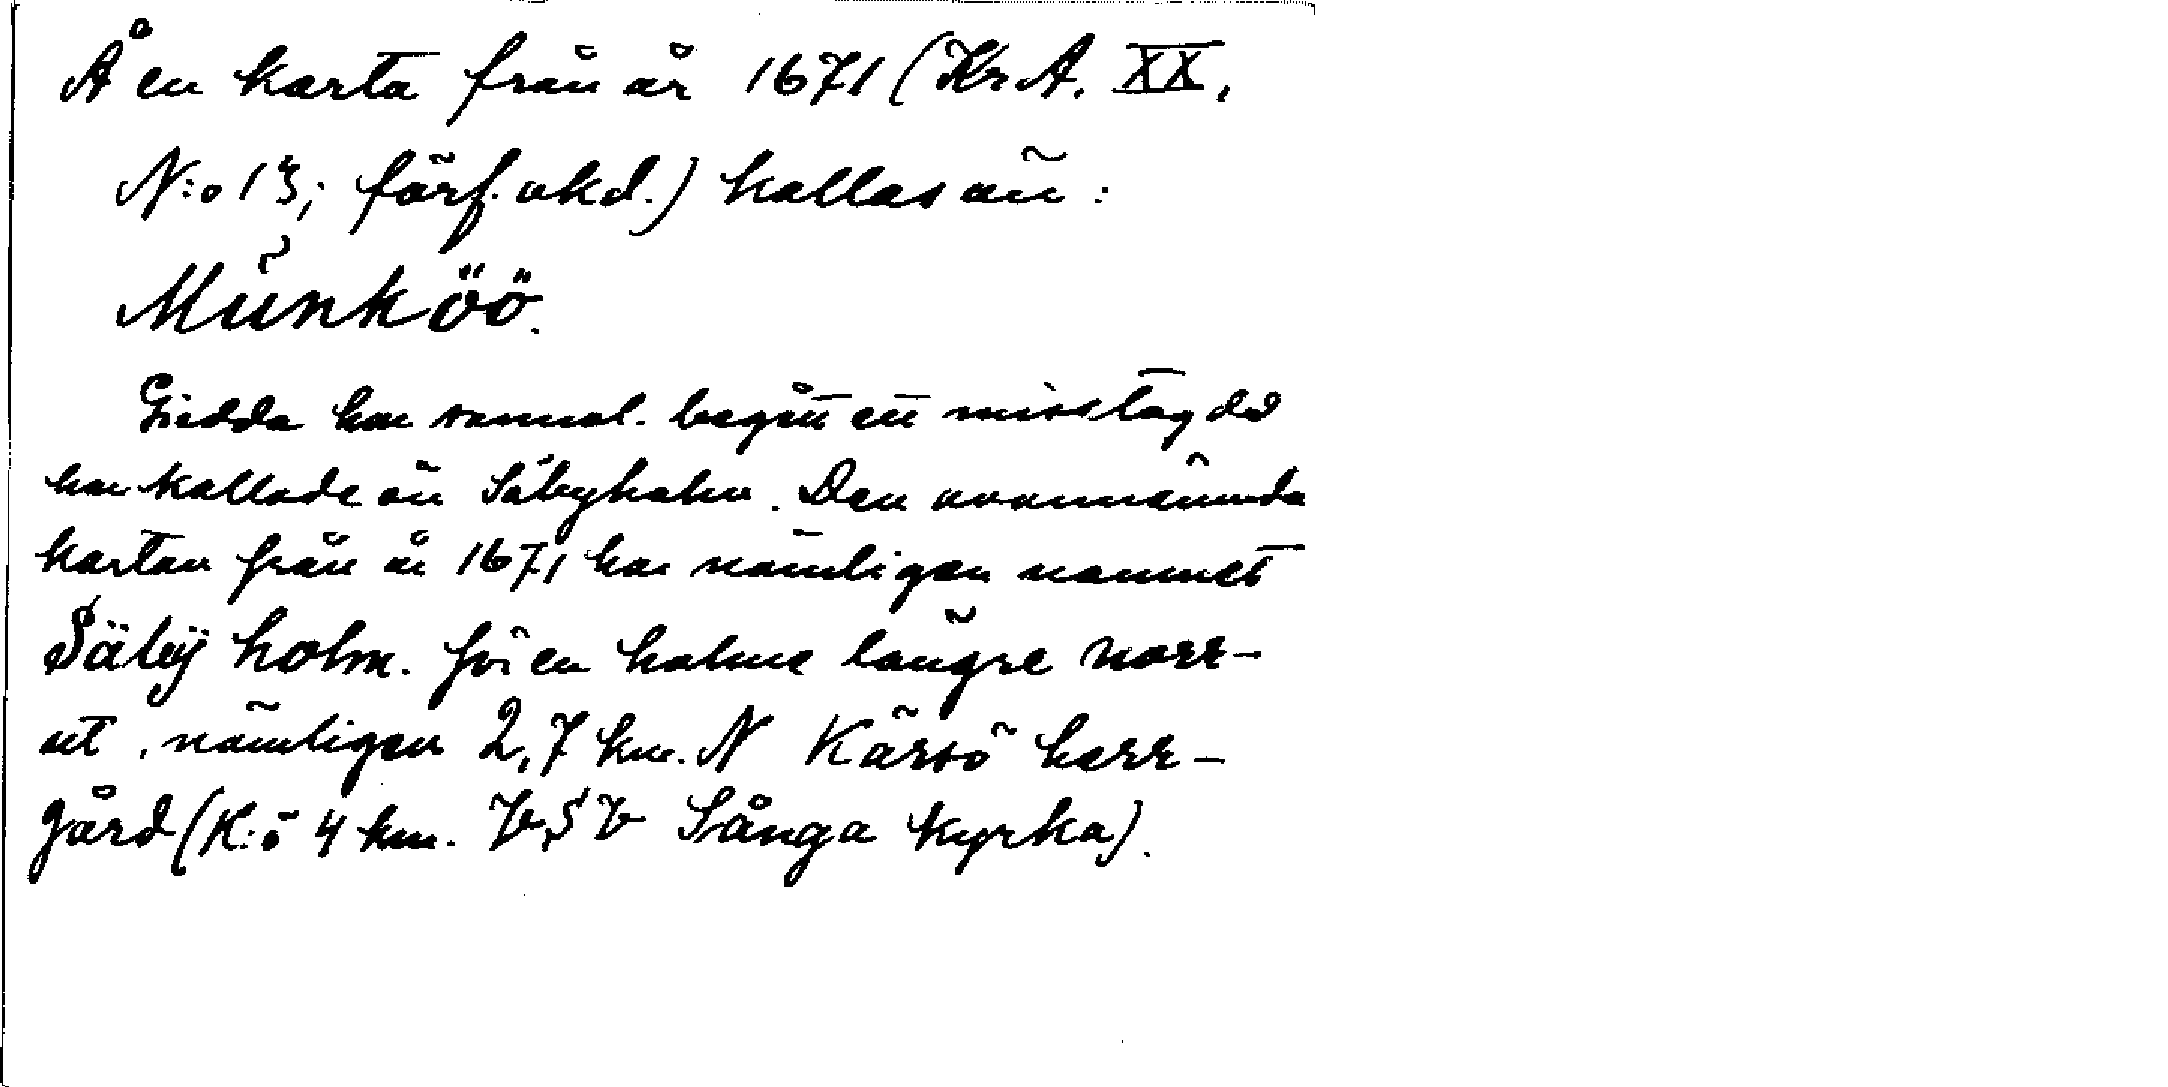 Å en karta från år 1671 (Kr. A. XX,
N:o 13; förf. okd.) kallas ön:
Munköö.
Gidda har sannol. begått ett misstag då
han kallade ön Säbyholm. Den ovannämnda
kartan från år 1671 har nämligen namnet
Säbÿ holm. för en holme längre norr-
ut, nämligen 2,7 km. N Kärsö herr-
gård (K:ö 4 km. V,SV Sånga kyrka).